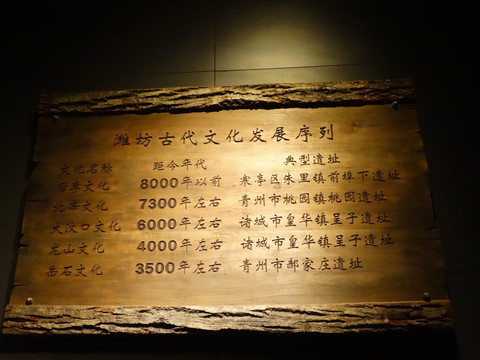 潍坊古代文化发展序列
文化名称 距今年代 典型遗址
后李文化 8000年以前 寒亭区朱里镇前埠下遗址
北辛文化 7300年左右 青州市桃园镇桃园遗址
大汶口文化 6000年左右 诸城市皇华镇呈子遗址
龙山文化 4000年左右 诸城市皇华镇呈子遗址
岳石文化 3500年左右 青州市郝家庄遗址